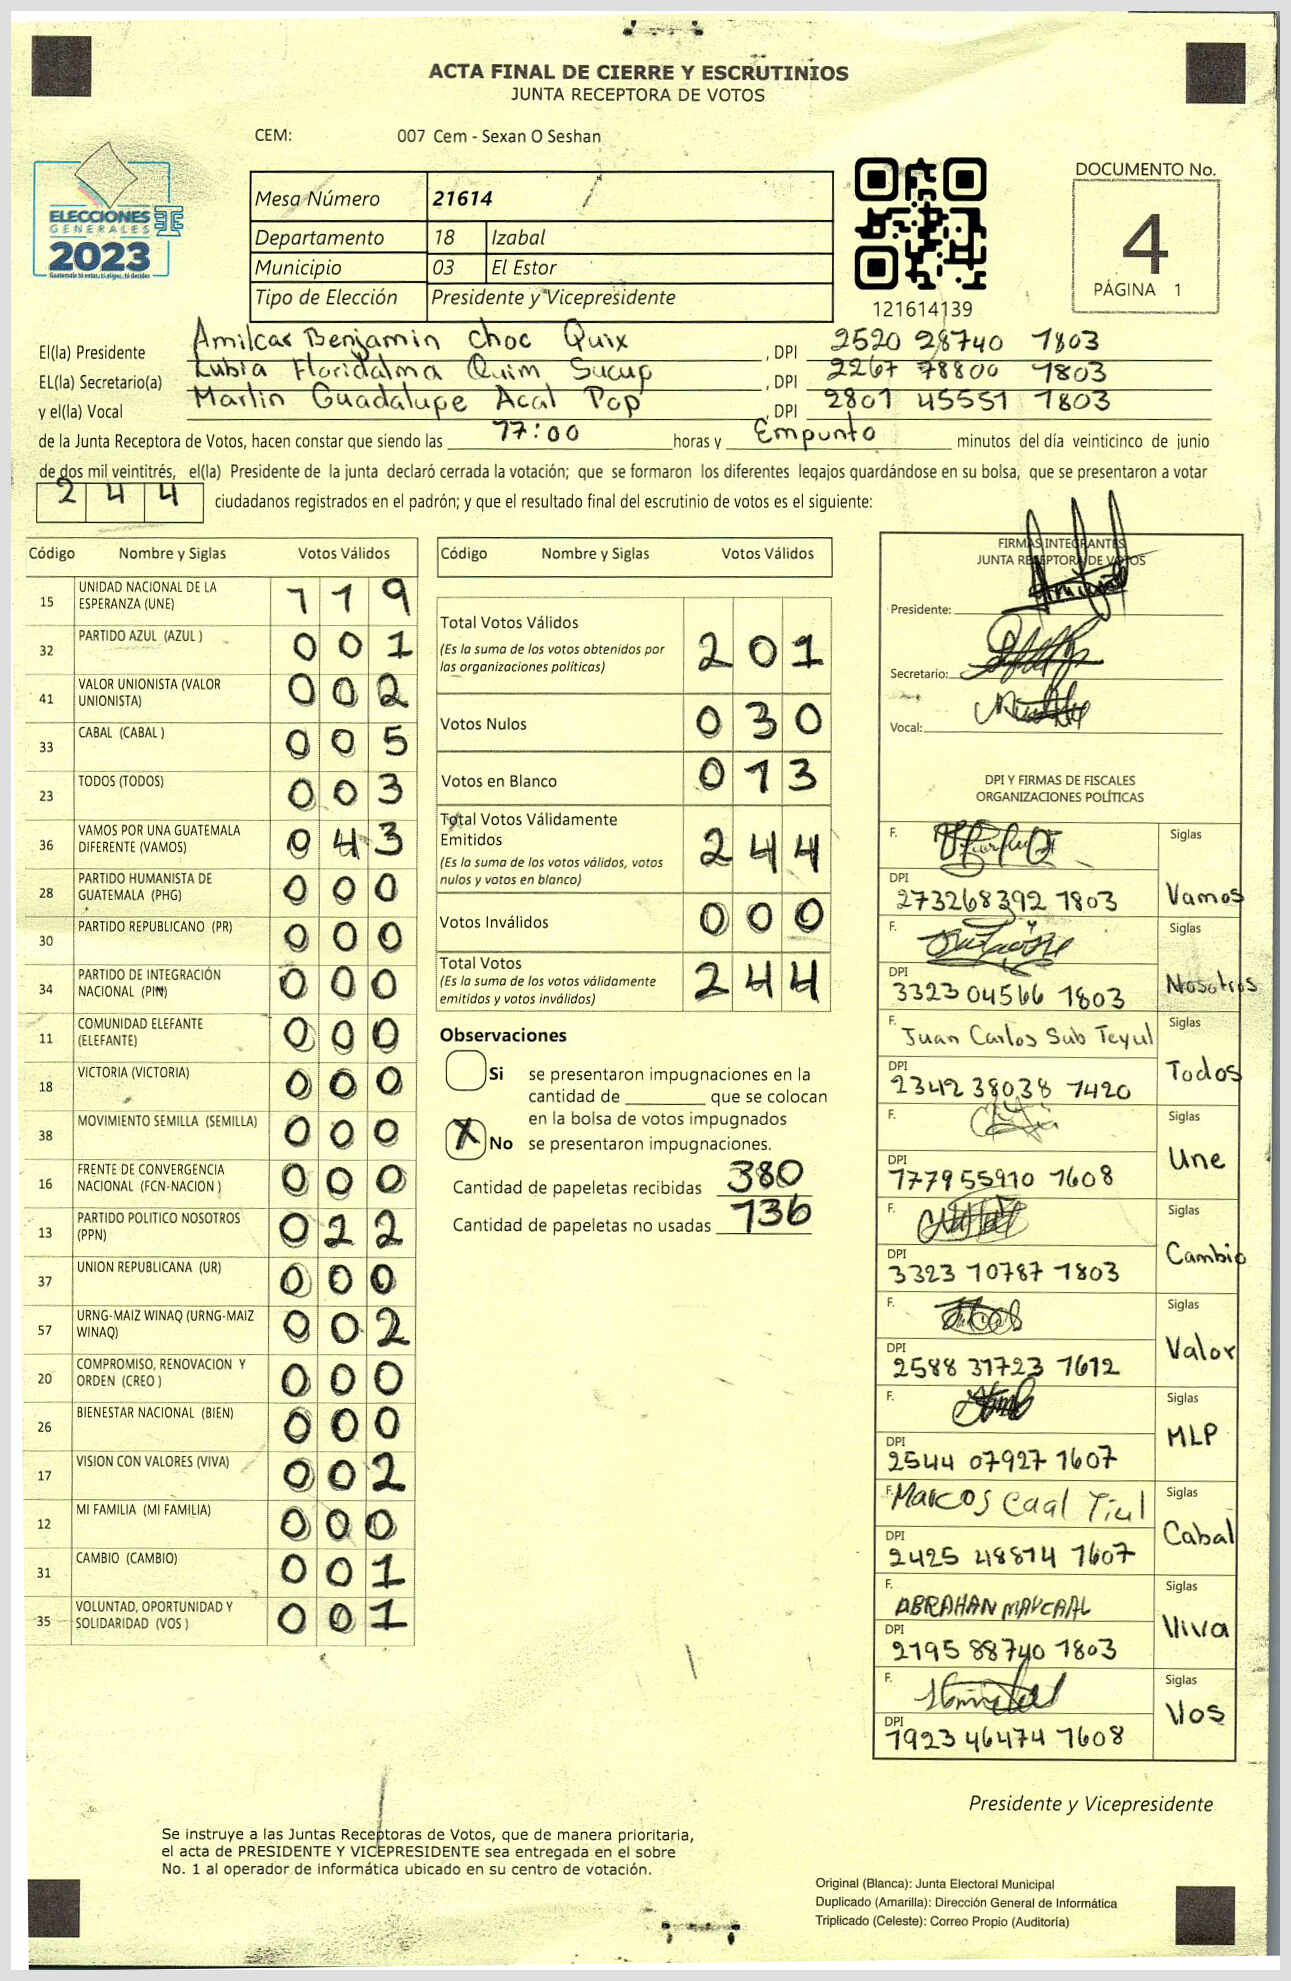 ACTA FINAL DE CIERRE Y ESCRUTINIOS
JUNTA RECEPTORA DE VOTOS
CEM: 007 Cem - Sexan O Seshan
ELECCIONES
GENERALES
2023
Mesa Número 21614
Departamento 18 Izabal
Municipio 03 El Estor
Tipo de Elección Presidente y Vicepresidente
121614139
DOCUMENTO No.
4
PÁGINA 1
El(la) Presidente Amilcar Benjamin Choc Quix, DPI 2520 28740 1803
EL(la) Secretario(a) Lubia Floridalma Quim Sucup, DPI 2267 78800 1803
y el(la) Vocal Marlin Guadalupe Acal Pop, DPI 2801 45551 1803
de la Junta Receptora de Votos, hacen constar que siendo las 17:00 horas y Empunto minutos del día veinticinco de junio
de dos mil veintitrés, el(la) Presidente de la junta declaró cerrada la votación; que se formaron los diferentes legajos guardándose en su bolsa, que se presentaron a votar
244 ciudadanos registrados en el padrón; y que el resultado final del escrutinio de votos es el siguiente:
Código Nombre y Siglas Votos Válidos
15 UNIDAD NACIONAL DE LA ESPERANZA (UNE) 119
32 PARTIDO AZUL (AZUL ) 001
41 VALOR UNIONISTA (VALOR UNIONISTA) 002
33 CABAL (CABAL ) 005
23 TODOS (TODOS) 003
36 VAMOS POR UNA GUATEMALA DIFERENTE (VAMOS) 043
28 PARTIDO HUMANISTA DE GUATEMALA (PHG) 000
30 PARTIDO REPUBLICANO (PR) 000
34 PARTIDO DE INTEGRACIÓN NACIONAL (PIN) 000
11 COMUNIDAD ELEFANTE (ELEFANTE) 000
18 VICTORIA (VICTORIA) 000
38 MOVIMIENTO SEMILLA (SEMILLA) 000
16 FRENTE DE CONVERGENCIA NACIONAL (FCN-NACION ) 000
13 PARTIDO POLITICO NOSOTROS (PPN) 022
37 UNION REPUBLICANA (UR) 000
57 URNG-MAIZ WINAQ (URNG-MAIZ WINAQ) 002
20 COMPROMISO, RENOVACION Y ORDEN (CREO ) 000
26 BIENESTAR NACIONAL (BIEN) 000
17 VISION CON VALORES (VIVA) 002
12 MI FAMILIA (MI FAMILIA) 000
31 CAMBIO (CAMBIO) 001
35 VOLUNTAD, OPORTUNIDAD Y SOLIDARIDAD (VOS ) 001
Código Nombre y Siglas Votos Válidos
Total Votos Válidos 201
(Es la suma de los votos obtenidos por
las organizaciones políticas)
Votos Nulos 030
Votos en Blanco 013
Total Votos Válidamente
Emitidos 244
(Es la suma de los votos válidos, votos
nulos y votos en blanco)
Votos Inválidos 000
Total Votos 244
(Es la suma de los votos válidamente
emitidos y votos inválidos)
Observaciones
Si se presentaron impugnaciones en la
cantidad de ________ que se colocan
en la bolsa de votos impugnados
X No se presentaron impugnaciones.
Cantidad de papeletas recibidas 380
Cantidad de papeletas no usadas 136
FIRMAS INTEGRANTES
JUNTA RECEPTORA DE VOTOS
Presidente:
Secretario:
Vocal:
DPI Y FIRMAS DE FISCALES
ORGANIZACIONES POLÍTICAS
F. Siglas
DPI 273268392 1803 Vamos
F. Siglas
DPI 3323 04566 1803 Nosotros
F. Juan Carlos Sub Teyul Siglas
DPI 2342 38038 1420 Todos
F. Siglas
DPI 177955910 1608 Une
F. Siglas
DPI 3323 10787 1803 Cambio
F. Siglas
DPI 2588 31723 1612 Valor
F. Siglas
DPI 2544 07927 1607 MLP
F. Marcos Caal Tiul Siglas
DPI 2425 48814 1607 Cabal
F. ABRAHAN Siglas
DPI 2195 88740 1803 Viva
F. Siglas
DPI 1923 46474 1608 Vos
Presidente y Vicepresidente
Se instruye a las Juntas Receptoras de Votos, que de manera prioritaria,
el acta de PRESIDENTE Y VICEPRESIDENTE sea entregada en el sobre
No. 1 al operador de informática ubicado en su centro de votación.
Original (Blanca): Junta Electoral Municipal
Duplicado (Amarilla): Dirección General de Informática
Triplicado (Celeste): Correo Propio (Auditoría)